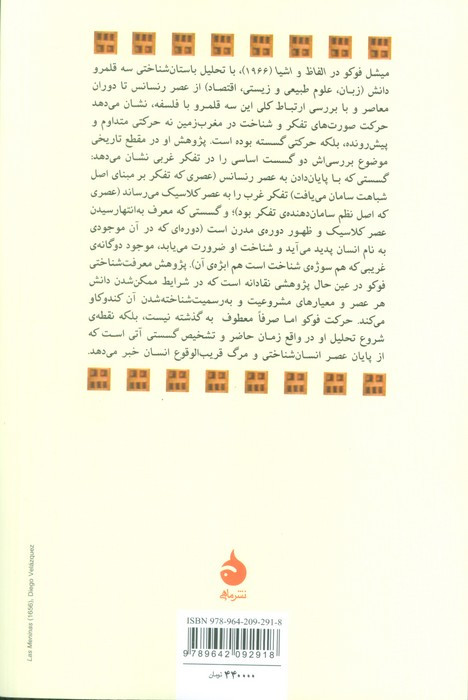 میشل فوکو در الفاظ و اشیا (۱۹۶۶)، با تحلیل باستان‌شناختی سه قلمرو
دانش (زبان، علوم طبیعی و زیستی، اقتصاد) از عصر رنسانس تا دوران
معاصر و با بررسی ارتباط کلی این سه قلمـرو با فلسفه، نشان می‌دهد
حرکت صورت‌های تفکر و شناخت در مغرب‌زمین نه حرکتی متداوم و
پیش‌رونده، بلکه حرکتی گسسته بوده است. پژوهش او در مقطع تاریخی
موضوع بررسی‌اش دو گسست اساسی را در تفکر غربی نشان می‌دهد:
گسستی که با پایان‌دادن به عصر رنسانس (عصری که تفکر بر مبنای اصل
شباهت سامان می‌یافت) تفکر غرب را به عصر کلاسیک می‌رساند (عصری
که اصل نظم سامان‌دهنده‌ی تفکر بود)؛ و گسستی که معرف به‌انتهارسیدن
عصر کلاسیک و ظهور دوره‌ی مدرن است (دوره‌ای که در آن موجودی
به نام انسان پدید می‌آید و شناخت او ضرورت می‌یابد، موجود دوگانه‌ی
غریبی که هم سوژه‌ی شناخت است هم ابژه‌ی آن). پژوهش معرفت‌شناختی
فوکو در عین حال پژوهشی نقادانه است که در شرایط ممکن‌شدن دانش
هر عصر و معیارهای مشروعیت و به‌رسمیت‌شناخته‌شدن آن کندوکاو
می‌کند. حرکت فوکو اما صرفاً معطوف به گذشته نیست، بلکه نقطه‌ی
شروع تحلیل او در واقع زمان حاضر و تشخیص گسستی آتی است که
از پایان عصر انسان‌شناختی و مرگ قریب‌الوقوع انسان خبر می‌دهد.
Las Meninas (1656), Diego Velázquez
نشر ماهی
ISBN 978-964-209-291-8
9 789642 092918
۴۴۰۰۰۰ تومان